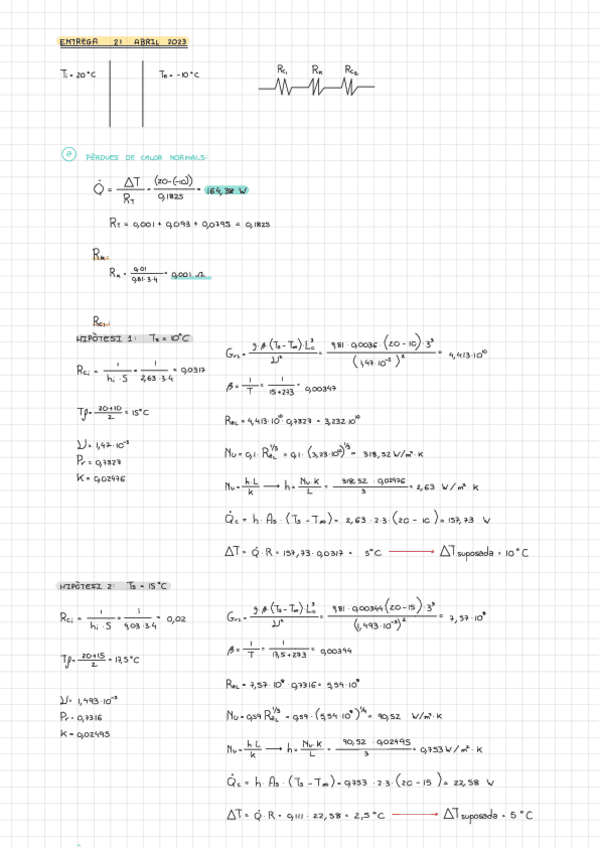 ENTREGA 21 ABRIL 2023
Ti = 20°C T∞ = -10°C Rc₁ Rk Rc₂
a PÈRDUES DE CALOR NORMALS:
Q̇ = ΔT / R_T = (20-(-10)) / 0,1825 = 164,38 W
R_T = 0,001 + 0,093 + 0,0795 = 0,1825
Rk:
Rk = 0,01 / 0,81·3·4 = 0,001 Ω
Rc₁:
HIPÒTESI 1: Ts = 10°C
Rci = 1 / hi·S = 1 / 2,63·3·4 = 0,0317
Tf = 20+10 / 2 = 15°C
𝜈 = 1,47·10⁻⁵
Pr = 0,7323
K = 0,02476
GrL = g·β·(Ts - T∞)·Lc³ / 𝜈² = 9,81·0,0036·(20-10)·3³ / (1,47·10⁻⁵)² = 4,413·10¹⁰
β = 1 / T = 1 / 15+273 = 0,00347
RaL = 4,413·10¹⁰·0,7323 = 3,232·10¹⁰
Nu = 0,1·RaL^1/3 = 0,1·(3,23·10¹⁰)^1/3 = 318,52 W/m²·K
Nu = h·L / k → h = Nu·K / L = 318,52·0,02476 / 3 = 2,63 W/m²·K
Q̇c = h·As·(Ts - T∞) = 2,63·2·3·(20-10) = 157,73 W
ΔT = Q̇·R = 157,73·0,0317 = 5°C → ΔT suposada = 10°C
HIPÒTESI 2: Ts = 15°C
Rci = 1 / hi·S = 1 / 4,03·3·4 = 0,02
Tf = 20+15 / 2 = 17,5°C
𝜈 = 1,493·10⁻⁵
Pr = 0,7316
K = 0,02495
GrL = g·β·(Ts - T∞)·Lc³ / 𝜈² = 9,81·0,00344·(20-15)·3³ / (1,493·10⁻⁵)² = 7,57·10⁹
β = 1 / T = 1 / 17,5+273 = 0,00344
RaL = 7,57·10⁹·0,7316 = 5,54·10⁹
Nu = 0,59 RaL^1/4 = 0,59·(5,54·10⁹)^1/4 = 90,52 W/m²·K
Nu = h·L / k → h = Nu·K / L = 90,52·0,02495 / 3 = 0,753 W/m²·K
Q̇c = h·As·(Ts - T∞) = 0,753·2·3·(20-15) = 22,58 W
ΔT = Q̇·R = 0,111·22,58 = 2,5°C → ΔT suposada = 5°C